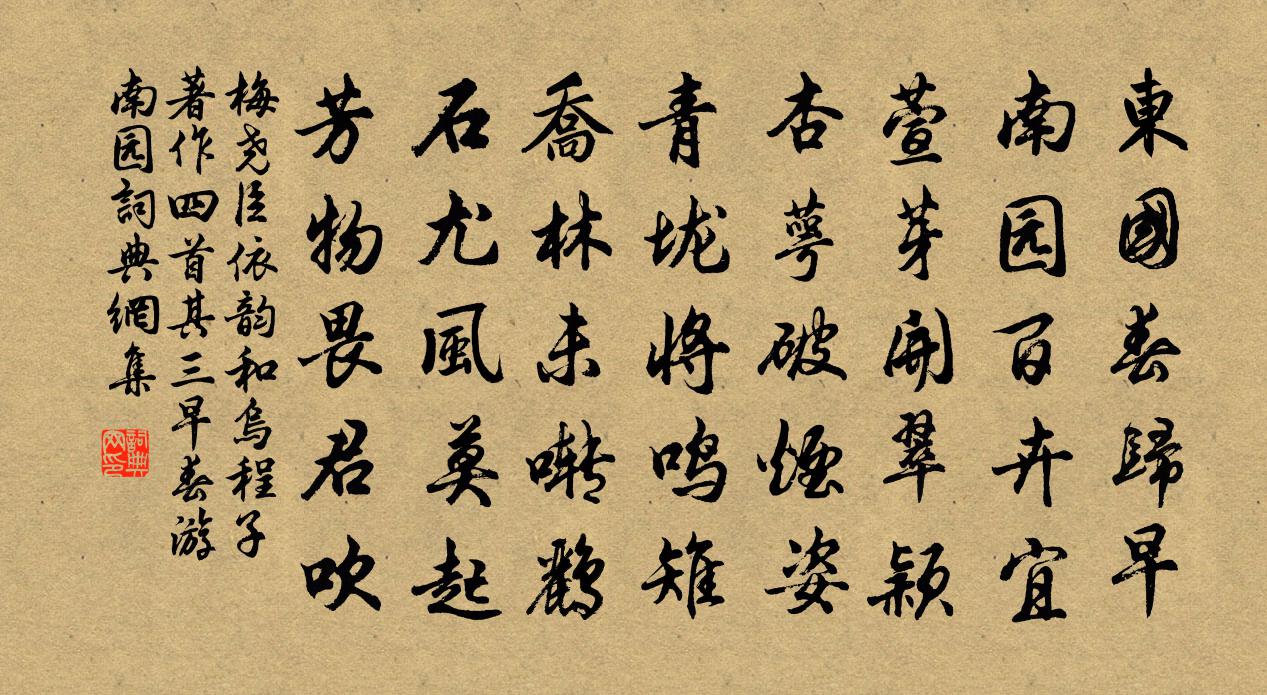 東國春歸早
南园百卉宜
萱芽開翠穎
杏萼破煙姿
青垅将鸣雉
喬林未囀鸝
石尤風莫起
芳物畏君吹
梅尧臣依韵和烏程子
著作四首其三早春游
南园詞典網集
詞典网印